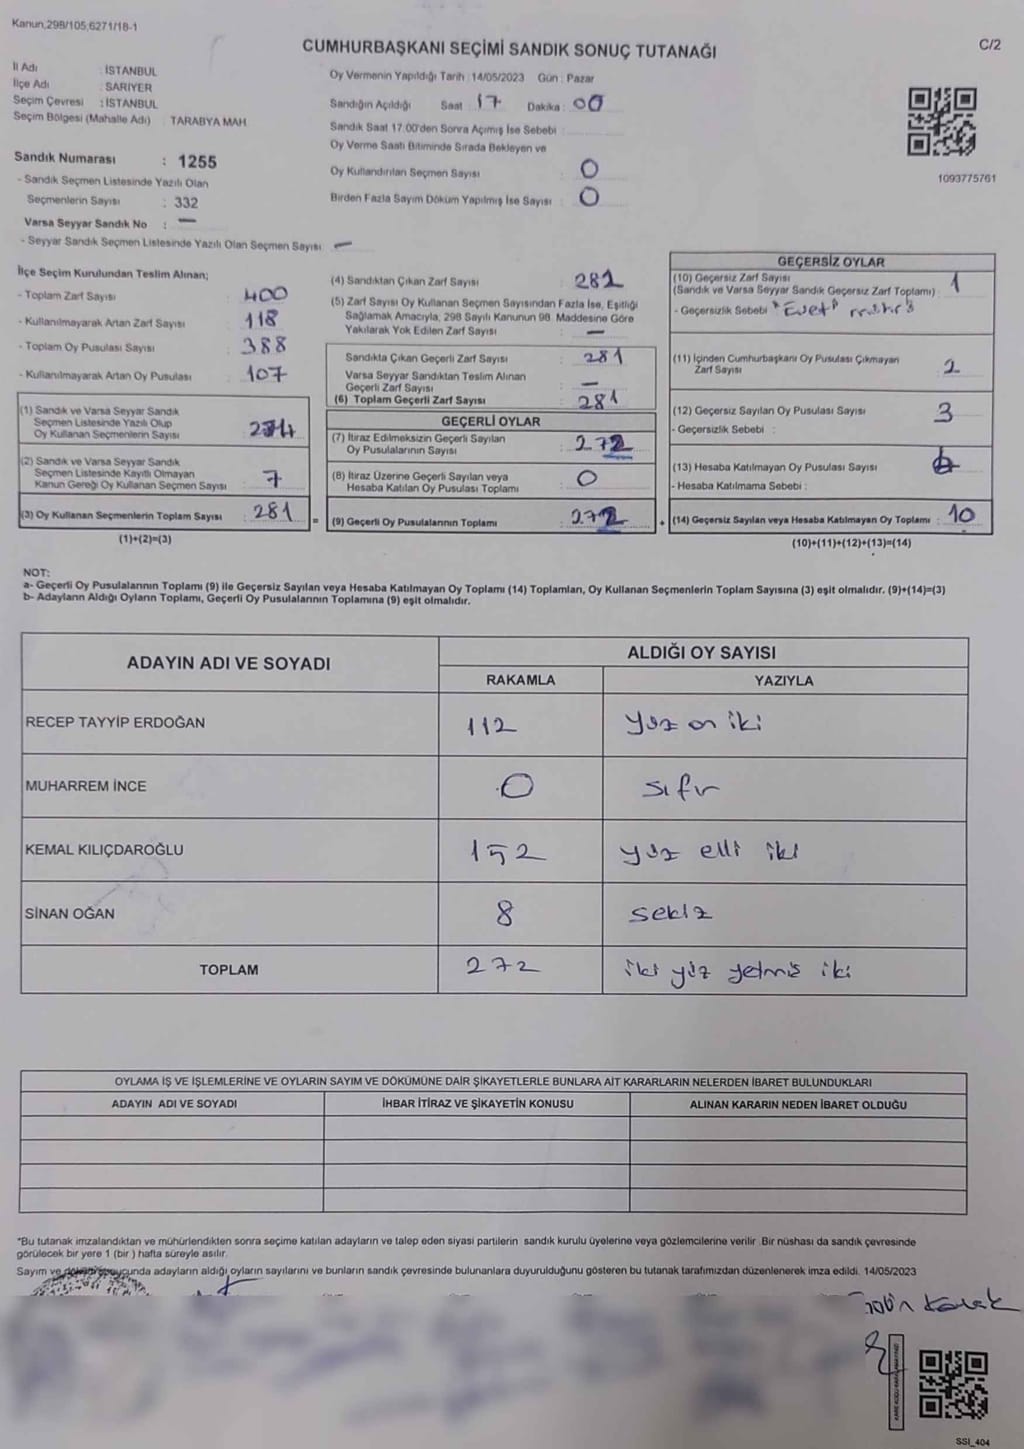 Kanun,298/105,6271/18-1
C/2
CUMHURBAŞKANI SEÇİMİ SANDIK SONUÇ TUTANAĞI
İl Adı : İSTANBUL
İlçe Adı : SARIYER
Seçim Çevresi : İSTANBUL
Seçim Bölgesi (Mahalle Adı) : TARABYA MAH.
Sandık Numarası : 1255
- Sandık Seçmen Listesinde Yazılı Olan
Seçmenlerin Sayısı : 332
Varsa Seyyar Sandık No : —
- Seyyar Sandık Seçmen Listesinde Yazılı Olan Seçmen Sayısı : —
Oy Vermenin Yapıldığı Tarih : 14/05/2023 Gün : Pazar
Sandığın Açıldığı Saat : 17 Dakika : 00
Sandık Saat 17:00'den Sonra Açımış İse Sebebi :
Oy Verme Saati Bitiminde Sırada Bekleyen ve
Oy Kullandırılan Seçmen Sayısı : 0
Birden Fazla Sayım Döküm Yapılmış İse Sayısı : 0
1093775761
İlçe Seçim Kurulundan Teslim Alınan;
- Toplam Zarf Sayısı : 400
- Kullanılmayarak Artan Zarf Sayısı : 118
- Toplam Oy Pusulası Sayısı : 388
- Kullanılmayarak Artan Oy Pusulası : 107
(1) Sandık ve Varsa Seyyar Sandık
Seçmen Listesinde Yazılı Olup
Oy Kullanan Seçmenlerin Sayısı : 274
(2) Sandık ve Varsa Seyyar Sandık
Seçmen Listesinde Kayıtlı Olmayan
Kanun Gereği Oy Kullanan Seçmen Sayısı : 7
(3) Oy Kullanan Seçmenlerin Toplam Sayısı : 281
(1)+(2)=(3)
(4) Sandıktan Çıkan Zarf Sayısı : 281
(5) Zarf Sayısı Oy Kullanan Seçmen Sayısından Fazla İse, Eşitliği
Sağlamak Amacıyla, 298 Sayılı Kanunun 98. Maddesine Göre
Yakılarak Yok Edilen Zarf Sayısı : —
Sandıkta Çıkan Geçerli Zarf Sayısı : 281
Varsa Seyyar Sandıktan Teslim Alınan
Geçerli Zarf Sayısı : —
(6) Toplam Geçerli Zarf Sayısı : 281
GEÇERLİ OYLAR
(7) İtiraz Edilmeksizin Geçerli Sayılan
Oy Pusulalarının Sayısı : 272
(8) İtiraz Üzerine Geçerli Sayılan veya
Hesaba Katılan Oy Pusulası Toplamı : 0
= (9) Geçerli Oy Pusulalarının Toplamı : 272
GEÇERSİZ OYLAR
(10) Geçersiz Zarf Sayısı
(Sandık ve Varsa Seyyar Sandık Geçersiz Zarf Toplamı) : 1
- Geçersizlik Sebebi : "Evet"
(11) İçinden Cumhurbaşkanı Oy Pusulası Çıkmayan
Zarf Sayısı : 2
(12) Geçersiz Sayılan Oy Pusulası Sayısı : 3
- Geçersizlik Sebebi :
(13) Hesaba Katılmayan Oy Pusulası Sayısı :
- Hesaba Katılmama Sebebi :
+ (14) Geçersiz Sayılan veya Hesaba Katılmayan Oy Toplamı : 10
(10)+(11)+(12)+(13)=(14)
NOT:
a- Geçerli Oy Pusulalarının Toplamı (9) ile Geçersiz Sayılan veya Hesaba Katılmayan Oy Toplamı (14) Toplamları, Oy Kullanan Seçmenlerin Toplam Sayısına (3) eşit olmalıdır. (9)+(14)=(3)
b- Adayların Aldığı Oyların Toplamı, Geçerli Oy Pusulalarının Toplamına (9) eşit olmalıdır.
ADAYIN ADI VE SOYADI
ALDIĞI OY SAYISI
RAKAMLA YAZIYLA
RECEP TAYYİP ERDOĞAN 112 yüz on iki
MUHARREM İNCE 0 sıfır
KEMAL KILIÇDAROĞLU 152 yüz elli iki
SİNAN OĞAN 8 sekiz
TOPLAM 272 iki yüz yetmiş iki
OYLAMA İŞ VE İŞLEMLERİNE VE OYLARIN SAYIM VE DÖKÜMÜNE DAİR ŞİKAYETLERLE BUNLARA AİT KARARLARIN NELERDEN İBARET BULUNDUKLARI
ADAYIN ADI VE SOYADI İHBAR İTİRAZ VE ŞİKAYETİN KONUSU ALINAN KARARIN NEDEN İBARET OLDUĞU
"Bu tutanak imzalandıktan ve mühürlendikten sonra seçime katılan adayların ve talep eden siyasi partilerin sandık kurulu üyelerine veya gözlemcilerine verilir. Bir nüshası da sandık çevresinde
görülecek bir yere 1 (bir ) hafta süreyle asılır.
Sayım ve adayların aldığı oyların sayılarını ve bunların sandık çevresinde bulunanlara duyurulduğunu gösteren bu tutanak tarafımızdan düzenlenerek imza edildi. 14/05/2023
SSI_404